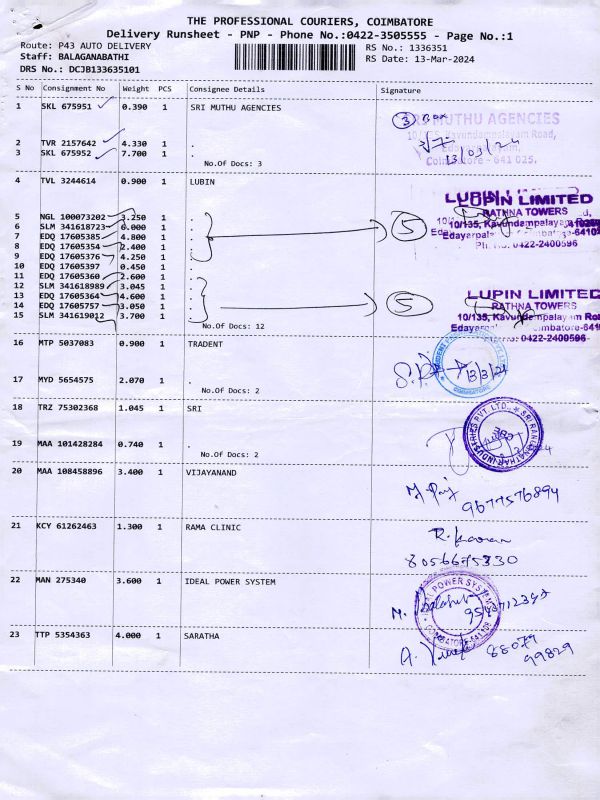 THE PROFESSIONAL COURIERS, COIMBATORE
Delivery Runsheet - PNP - Phone No.:0422-3505555 - Page No.:1
Route: P43 AUTO DELIVERY
Staff: BALAGANABATHI
DRS No.: DCJB133635101
RS No.: 1336351
RS Date: 13-Mar-2024
S No Consignment No Weight PCS Consignee Details Signature
1 SKL 675951 0.390 1 SRI MUTHU AGENCIES
3 Box
SRI MUTHU AGENCIES
10/135, Kavundampalayam Road,
2 TVR 2157642 4.330 1 .
3 SKL 675952 7.700 1 .
Coimbatore - 641 025.
13/03/24
No.Of Docs: 3
4 TVL 3244614 0.900 1 LUBIN
LUPIN LIMITED
RATHNA TOWERS
10/135, Kavundampalayam Road,
Edayarpalayam, Coimbatore-641025
Ph. No: 0422-2400596
5 NGL 100073202 3.250 1 .
6 SLM 341618723 6.000 1 .
7 EDQ 17605385 4.800 1 .
8 EDQ 17605354 2.400 1 .
9 EDQ 17605376 4.250 1 .
5
10 EDQ 17605397 0.450 1 .
11 EDQ 17605360 2.600 1 .
12 SLM 341618989 3.045 1 .
13 EDQ 17605364 4.600 1 .
14 EDQ 17605757 3.050 1 .
15 SLM 341619012 3.700 1 .
5
No.Of Docs: 12
LUPIN LIMITED
RATHNA TOWERS
10/135, Kavundampalayam Road
Coimbatore-641025
0422-2400596
16 MTP 5037083 0.900 1 TRADENT
13/3/24
COIMBATORE
17 MYD 5654575 2.070 1 .
No.Of Docs: 2
18 TRZ 75302368 1.045 1 SRI
SRI RANGANATHAR INDUSTRIES PVT. LTD.
19 MAA 101428284 0.740 1 .
No.Of Docs: 2
20 MAA 108458896 3.400 1 VIJAYANAND
9677576894
21 KCY 61262463 1.300 1 RAMA CLINIC
8056675330
22 MAN 275340 3.600 1 IDEAL POWER SYSTEM
IDEAL POWER SYSTEM
COIMBATORE-641 025
23 TTP 5354363 4.000 1 SARATHA
88079
99829